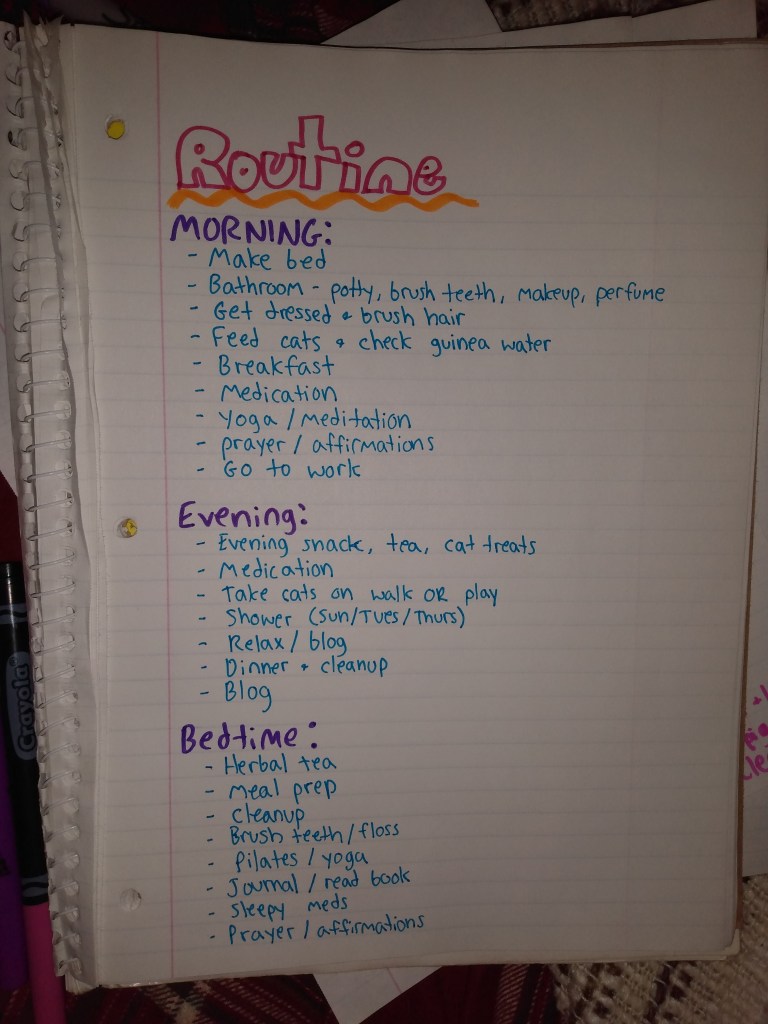 Routine
MORNING:
- Make bed
- Bathroom - potty, brush teeth, makeup, perfume
- Get dressed & brush hair
- Feed cats & check guinea water
- Breakfast
- Medication
- Yoga / Meditation
- prayer / affirmations
- Go to work
Evening:
- Evening snack, tea, cat treats
- Medication
- Take cats on walk OR play
- Shower (Sun/Tues/Thurs)
- Relax / blog
- Dinner & cleanup
- Blog
Bedtime:
- Herbal tea
- Meal prep
- Cleanup
- Brush teeth / floss
- Pilates / yoga
- Journal / read book
- Sleepy meds
- Prayer / affirmations
Crayola